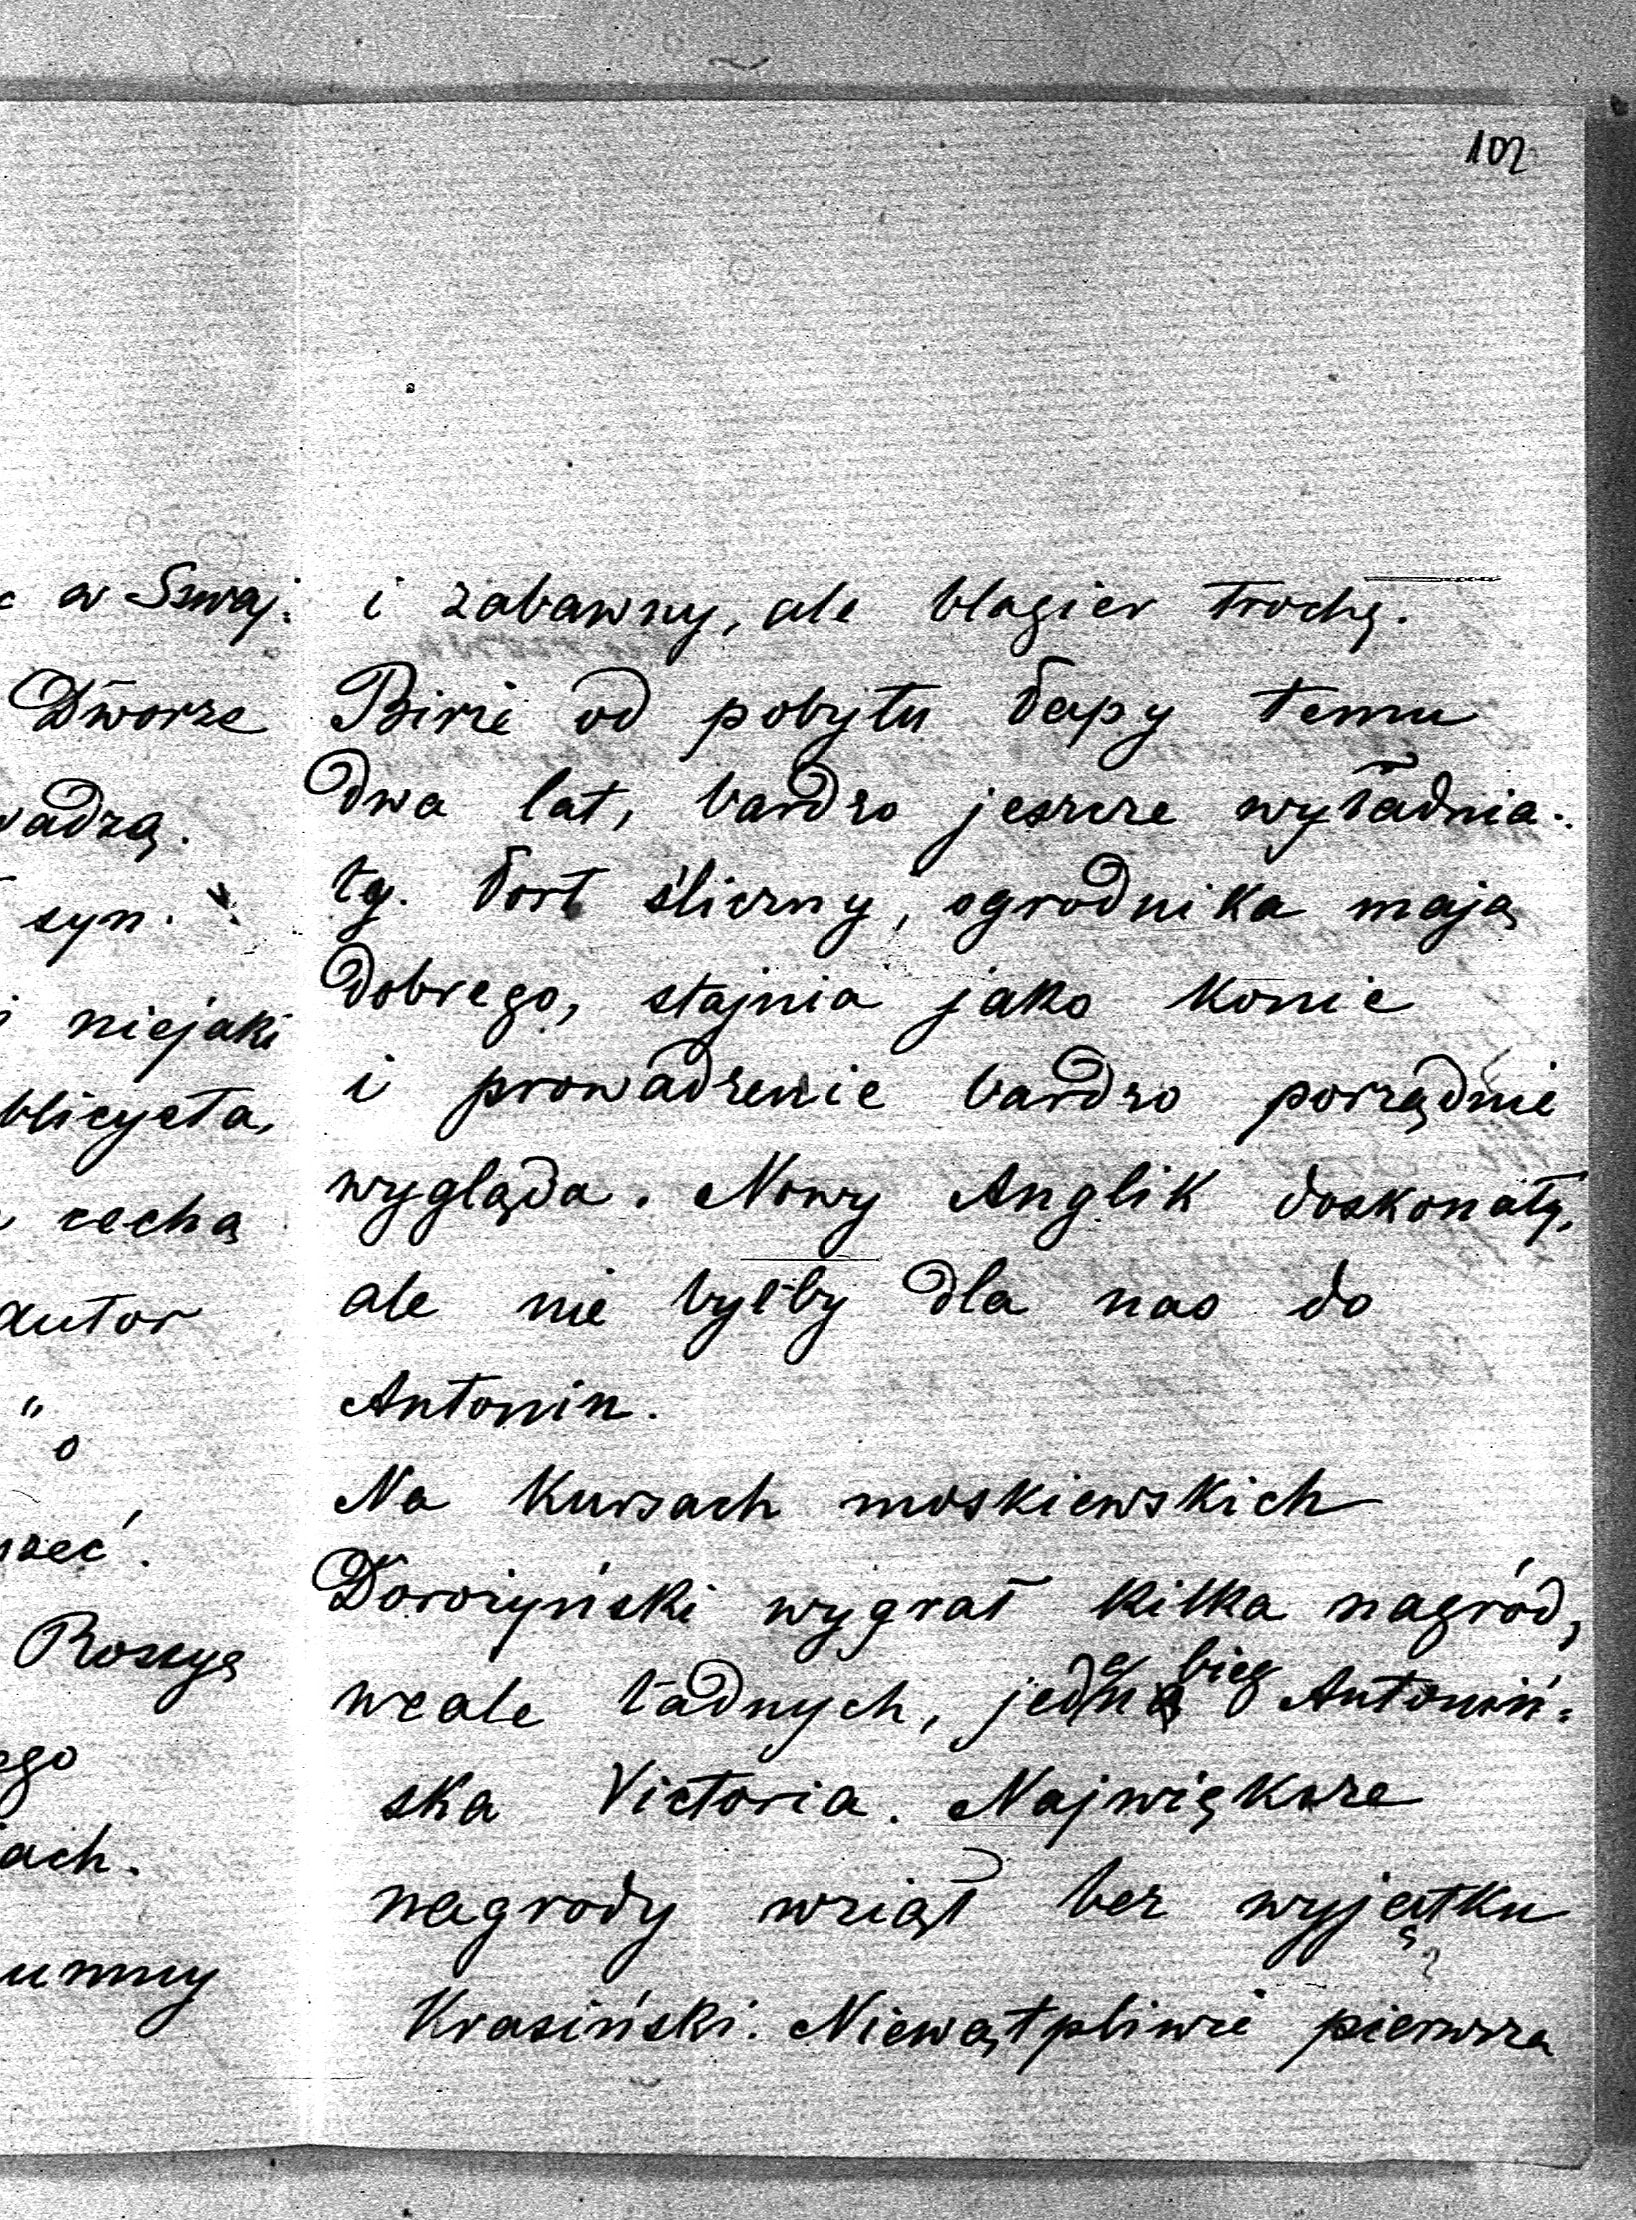 102
c w Szwaj:
Dworze
wadzą.
syn.
i niejaki
blicysta,
cechą
autor
" o
szeć.
Rossyę
ego
ach.
umny
i zabawny, ale blagier trochę.
Birże od pobytu Papy temu
dwa lat, bardzo jeszcze wyładnia-
ły. Fort śliczny, ogrodnika mają
dobrego, stajnia jako konie
i prowadzenie bardzo porządnie
wygląda. Nowy Anglik doskonały,
ale nie byłby dla nas do
Antonin.
Na kursach moskiewskich
Dorożyński wygrał kilka nagród,
wcale ładnych, jeden bieg Antoniń=
ska Victoria. Największe
nagrody wziął bez wyjątku
Krasiński. Niewątpliwie pierwsza